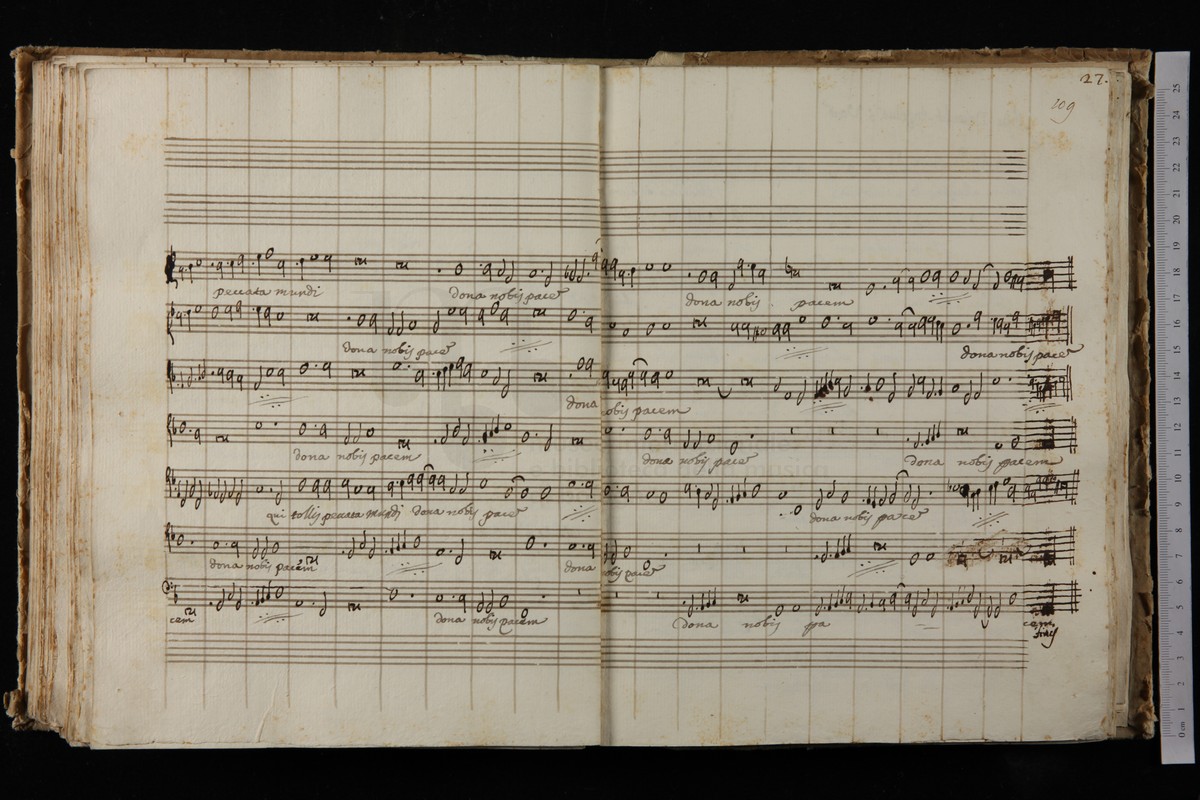 27.
109
peccata mundi dona nobis pacē dona nobis pacem
dona nobis pacē dona nobis pacē
dona nobis pacem
dona nobis pacem dona nobis pacē dona nobis pacem
qui tollis peccata mundi dona nobis pacē dona nobis pacē
dona nobis pacem dona nobis pacē
cem dona nobis pacem dona nobis pa cem.
finis